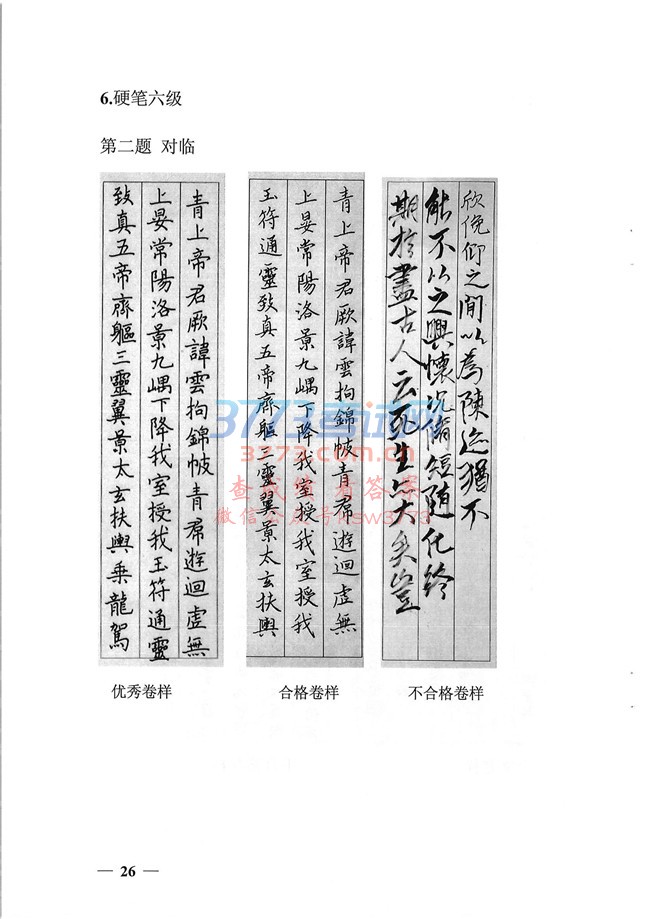 6.硬笔六级
第二题 对临
青上帝君厥諱雲拘錦帔青帬遊迴虛無
上晏常陽洛景九嵎下降我室授我玉符通靈
致真五帝齊軀三靈翼景太玄扶輿乘龍駕
青上帝君厥諱雲拘錦帔青帬遊迴虛無
上晏常陽洛景九嵎下降我室授我
玉符通靈致真五帝齊軀三靈翼景太玄扶輿
欣俛仰之間以為陳迹猶不
能不以之興懷況脩短隨化終
期於盡古人云死生亦大矣豈
3773考试网
3773.com.cn
查成绩 看答案
微信公众号:sw3773
优秀卷样
合格卷样
不合格卷样
— 26 —